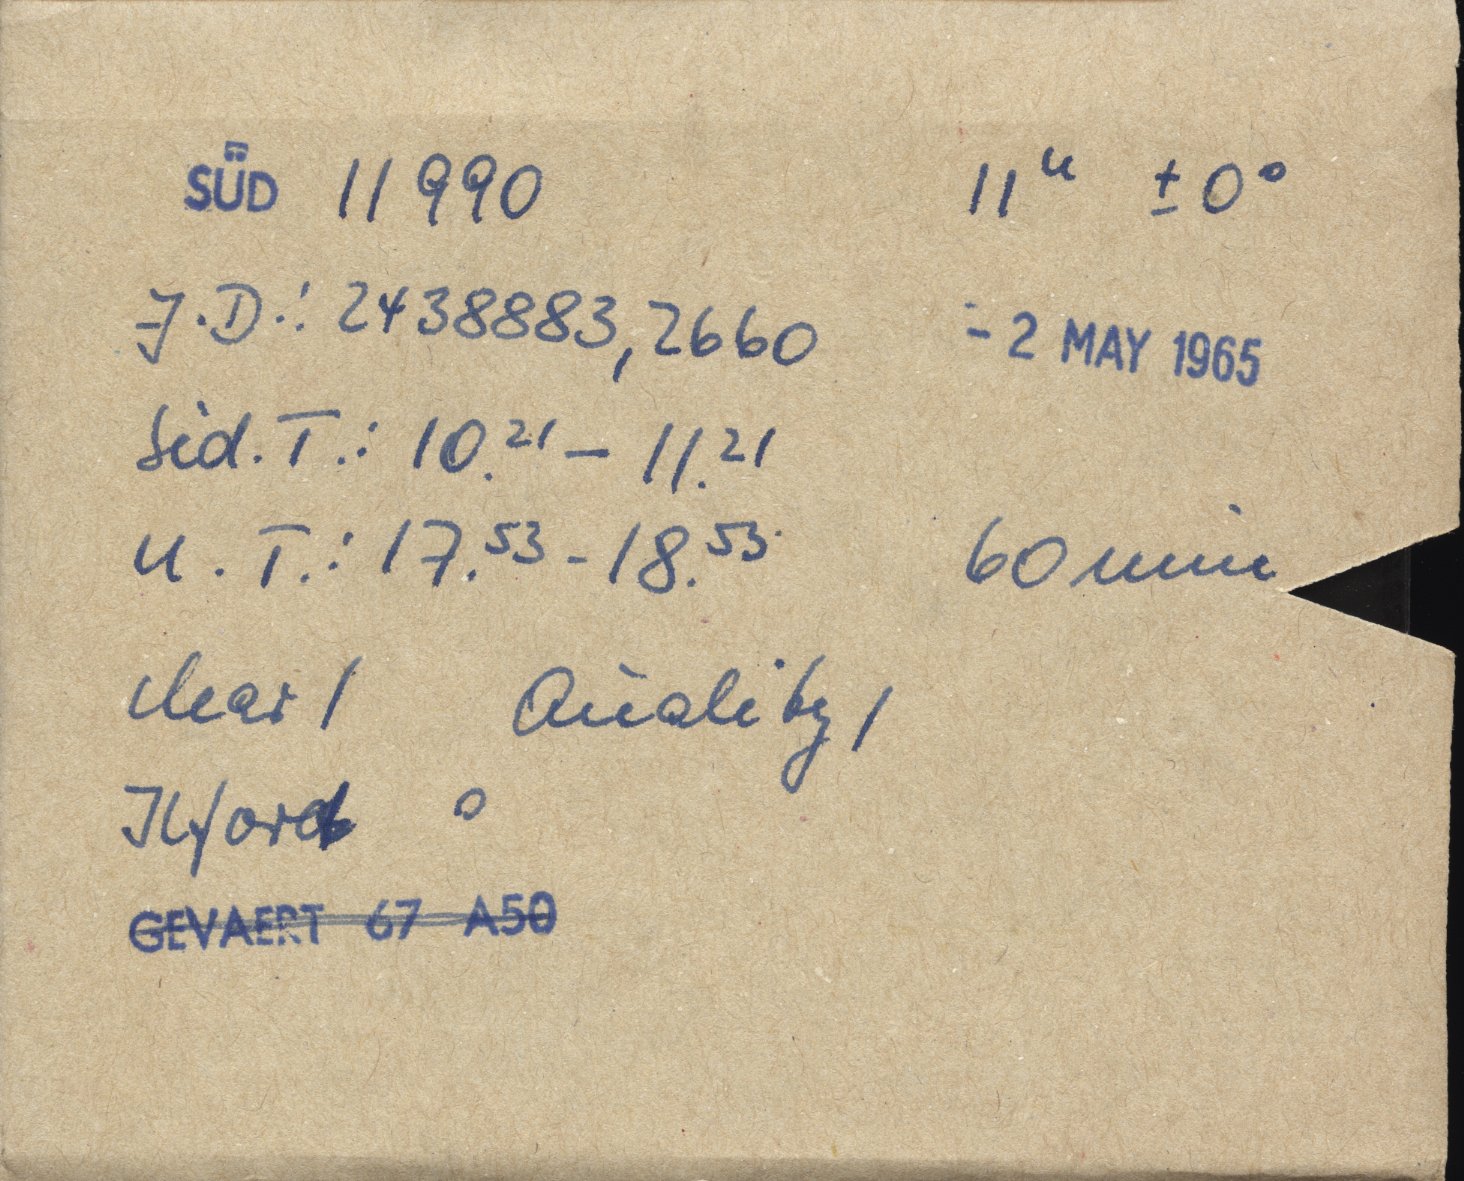 SÜD 11990 11ᵘ ±0°
J.D.: 2438883,2660 - 2 MAY 1965
Sid.T.: 10.²¹ – 11.²¹
U.T.: 17.⁵³ - 18.⁵³ 60 min
clear / Quality /
Ilford o
GEVAERT 67 A50